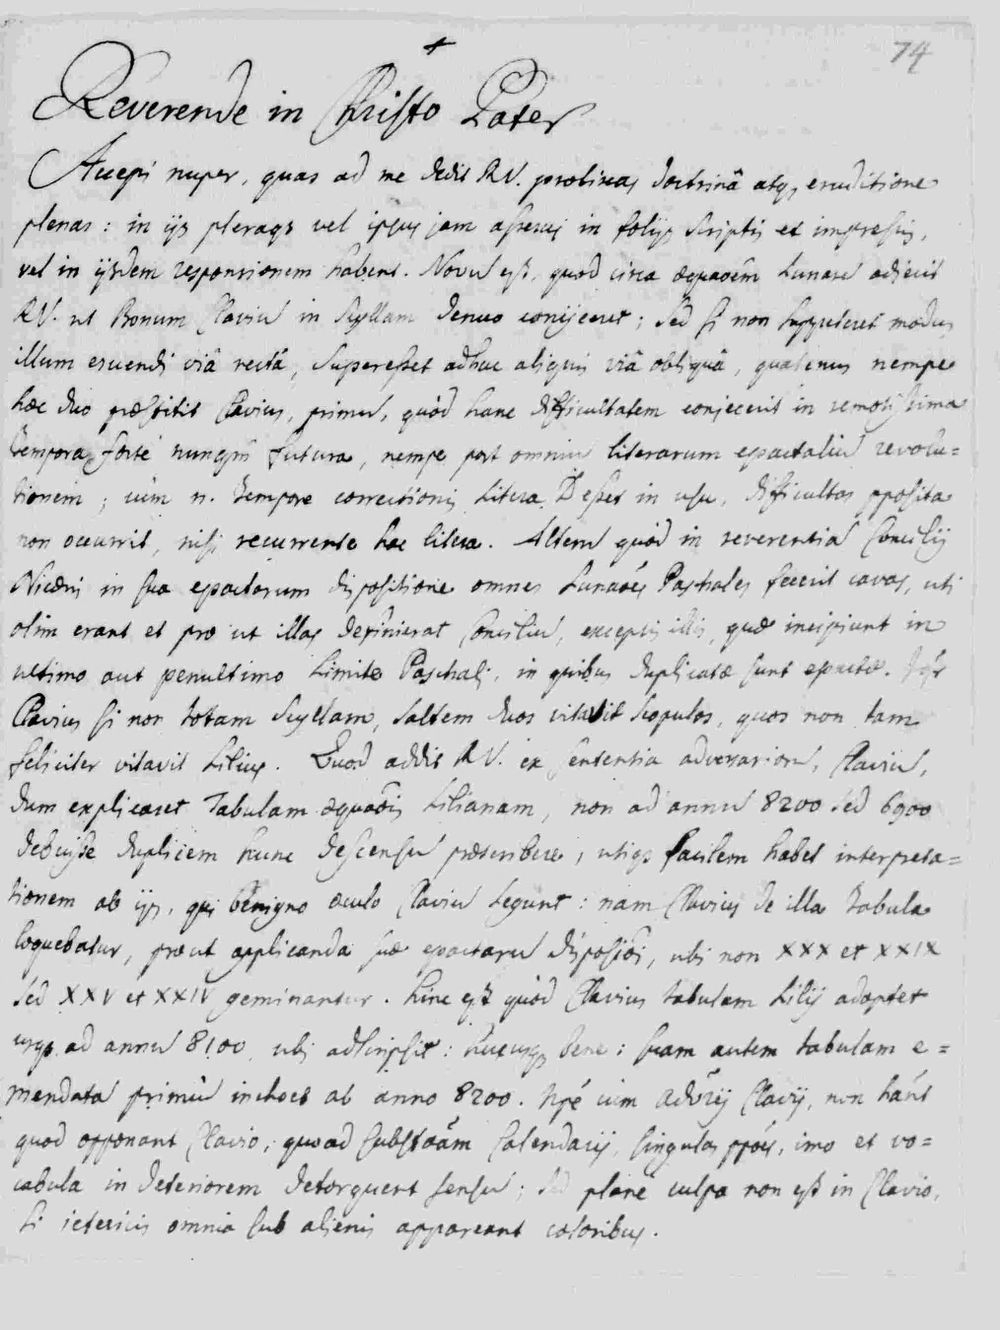 74
+
Reverende in Christo Pater
Accepi nuper, quas ad me dedit R.V. prolixas doctrinâ atq, eruditione
plenas: in ijs pleraq, vel ipsus jam asseruj in folijs scriptis et impressis,
vel in ijsdem responsionem habent. Novu est, quod circa æquaoẽm Lunare adjecit
R.V. ut Bonum Claviu in Scyllam denuo conijceret; sed si non suppeteret modus
illum eruendi viâ rectâ, superesset adhuc aliquis viâ obliquâ, quatenus nempe
hæc duo præstitit Clavius, primu, quòd hanc difficultatem conjecerit in remotissima
tempora forte nunqm futura, nempe post omniu literarum epactaliu revolu=
tionem; cùm n. tempore correctionis litera D esset in usu, difficultas pposita
non occurrit, nisi recurrente hac litera. Alteru quòd in reverentia Concilij
Nicæni in sua epactarum dispositione omnes Lunaões Paschales fecerit cavas, uti
olim erant et pro ut illas definierat Conciliu, exceptis illis, quæ incipiunt in
ultimo aut penultimo limite Paschali, in quibus duplicatæ sunt epactæ.
Clavius si non totam Scyllam, saltem duos vitavit scopulos, quos non tam
feliciter vitavit Lilius. Quod addit R.V. ex sententia adversarioru, Claviu,
dum explicaret Tabulam æquaõis Lilianam, non ad annu 8200 sed 6900
debuisse duplicem hunc descensu præscribere, utiq, facilem habet interpreta=
tionem ab ijs, qui benigno oculo Claviu legunt: nam Clavius de illa tabula
loquebatur, prout applicanda suæ epactaru disposiõi, ubi non XXX et XXIX
sed XXV et XXIV geminantur. Hinc est quòd Clavius tabulam Lilij adoptet
usq, ad annu 8100, ubi adscripsit: hucusq, bene: suam autem tabulam e=
mendata primù inchoet ab anno 8200. Npé cùm advẽrij Clavij, non hãnt
quod opponant Clavio, quoad substãam Calendarij, singulas ppõẽs, imo et vo=
cabula in deteriorem detorquent sensu; sed planè culpa non est in Clavio,
si ictericis omnia sub alienis appareant coloribus.